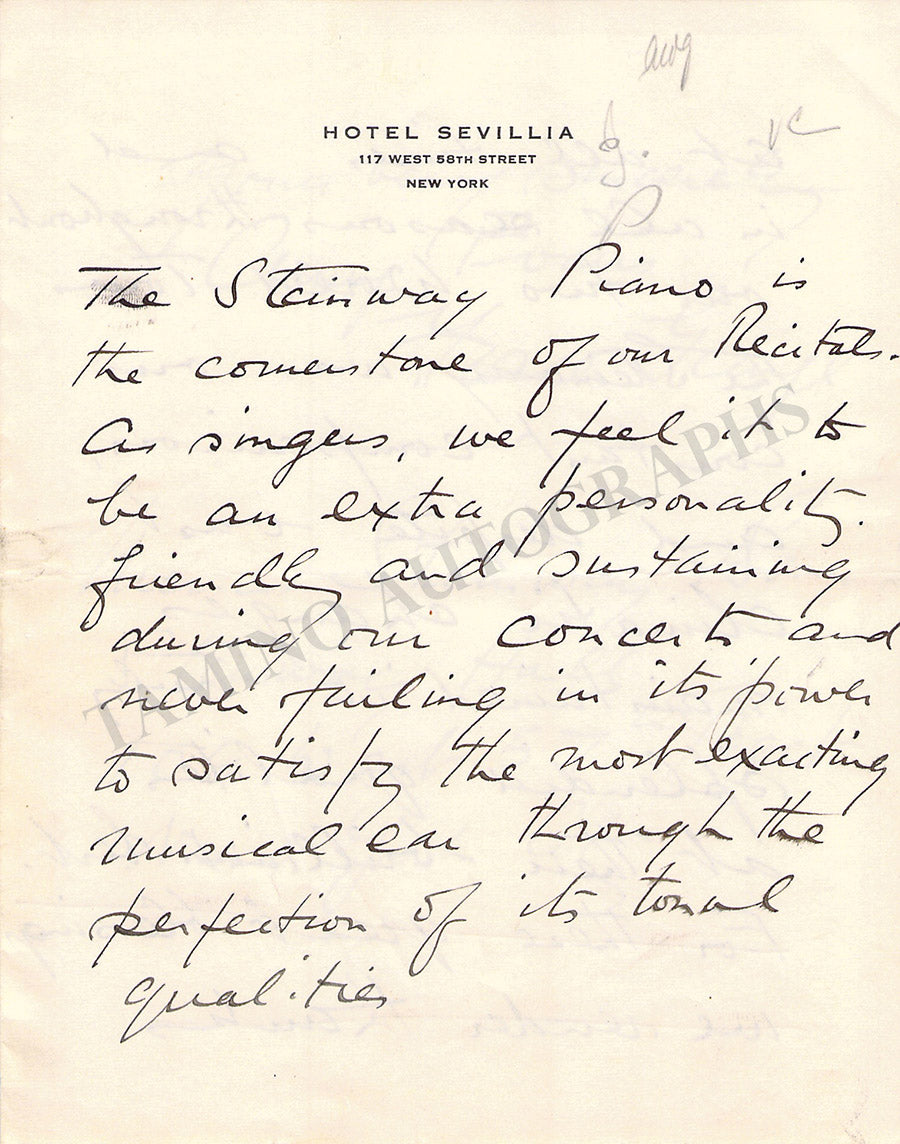 HOTEL SEVILLIA
117 WEST 58TH STREET
NEW YORK
The Steinway Piano is
the cornerstone of our Recitals.
As singers, we feel it to
be an extra personality.
friendly and sustaining
during our concerts and
never failing in its power
to satisfy the most exacting
musical ear through the
perfection of its tonal
qualities
TAMINO AUTOGRAPHS